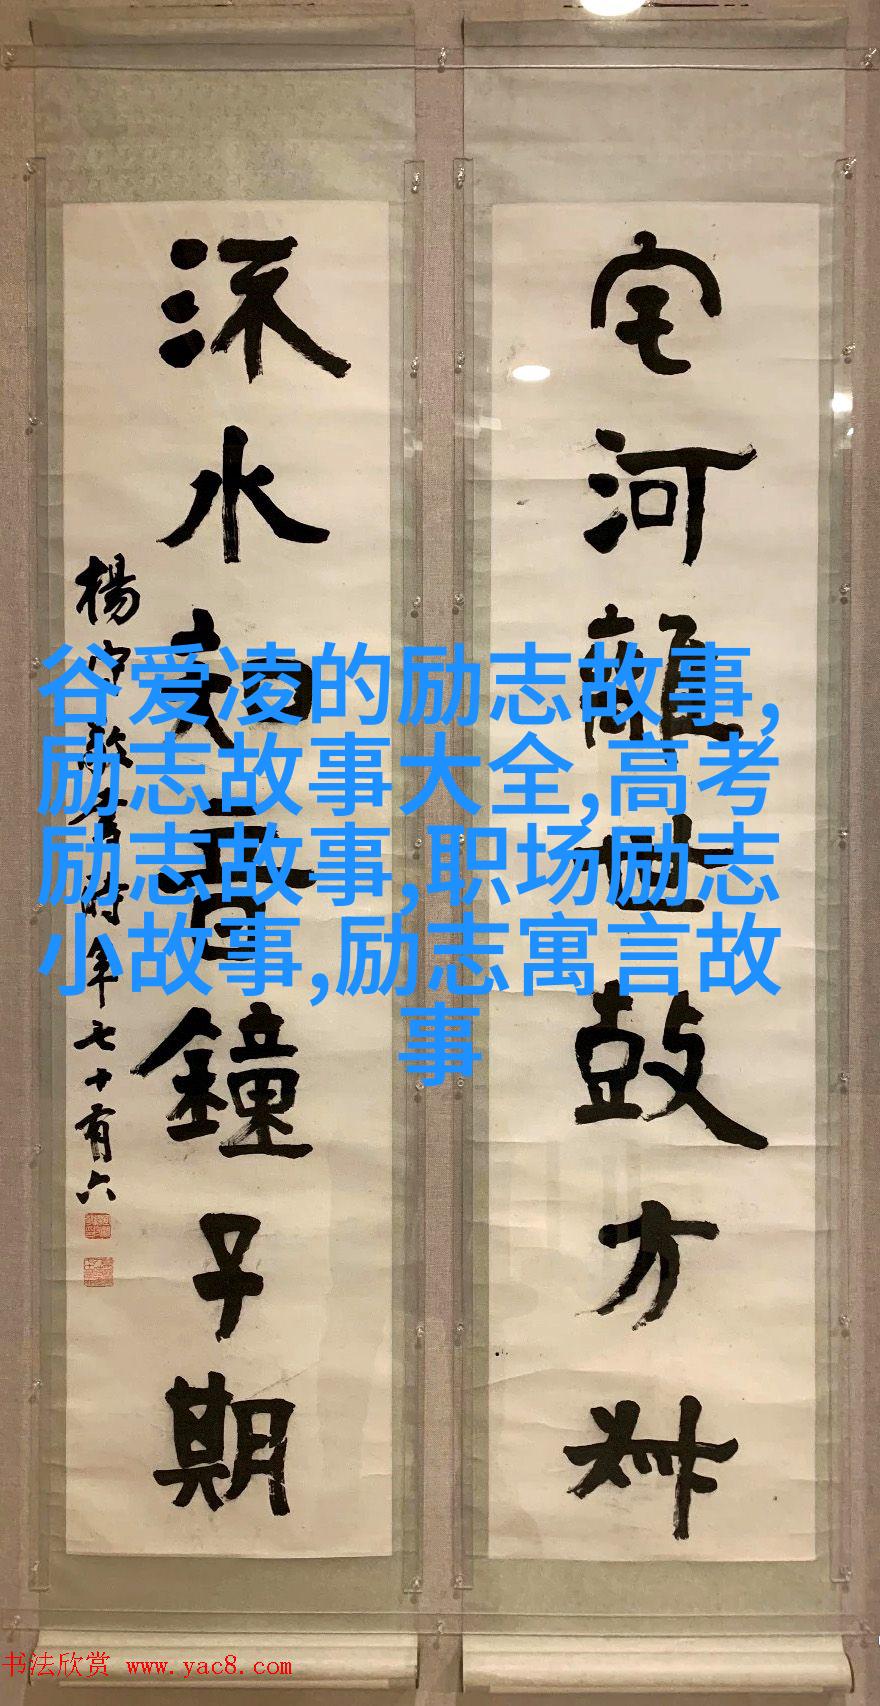 宅河離世鼓方叔
流水知音鐘子期
楊守敬書時年七十有六
谷爱凌的励志故事,
励志故事大全,高考
励志故事,职场励志
小故事,励志寓言故
事
书法欣赏 www.yac8.com